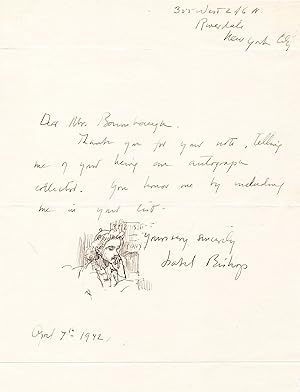 355 West 246 St.
Riverdale
New York City
Dear Mr.
Thank you for your note, telling
me of your being an autograph
collector. You honor me by including
me in your list.
Yours very sincerely
Isabel Bishop
April 7th 1942.